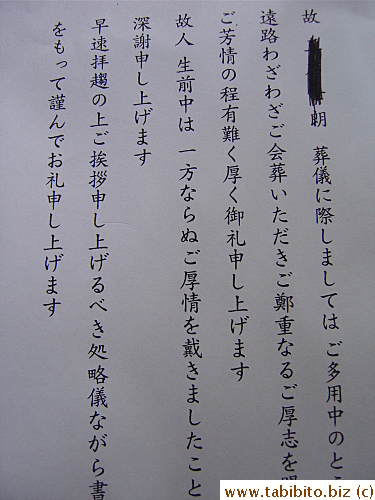 故 朗 葬儀に際しましては ご多用中のとこ
遠路わざわざご会葬いただきご鄭重なるご厚志を
ご芳情の程有難く厚く御礼申し上げます
故人 生前中は 一方ならぬご厚情を戴きましたこと
深謝申し上げます
早速拝趨の上ご挨拶申し上げるべき処略儀ながら書
をもって謹んでお礼申し上げます
www.tabibito.biz (c)